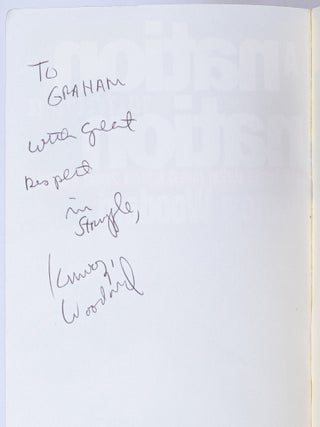 To
GRAHAM
with great
Respect
in
Struggle,
Komozi
Woodard